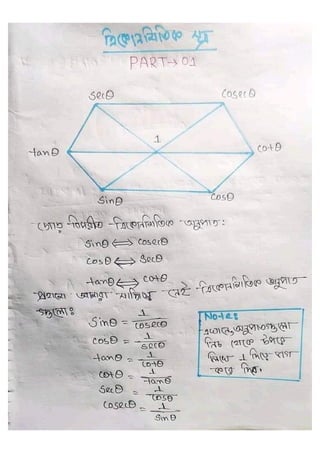 ত্রিকোণমিতিক সূত্র
PART→01
secθ
cosecθ
tanθ
1
cotθ
sinθ
cosθ
বিপরীত ত্রিকোণমিতিক অনুপাত:
sinθ ⟺ cosecθ
cosθ ⟺ secθ
tanθ ⟺ cotθ
আমরা সেই ত্রিকোণমিতিক অনুপাত
গুলোঃ
Sinθ = 1/cosecθ
cosθ = 1/secθ
tanθ = 1/cotθ
cotθ = 1/tanθ
secθ = 1/cosθ
cosecθ = 1/sinθ
Note:
অনুপাতগুলো
নিচ থেকে উপরে
1 দিয়ে ভাগ
করে